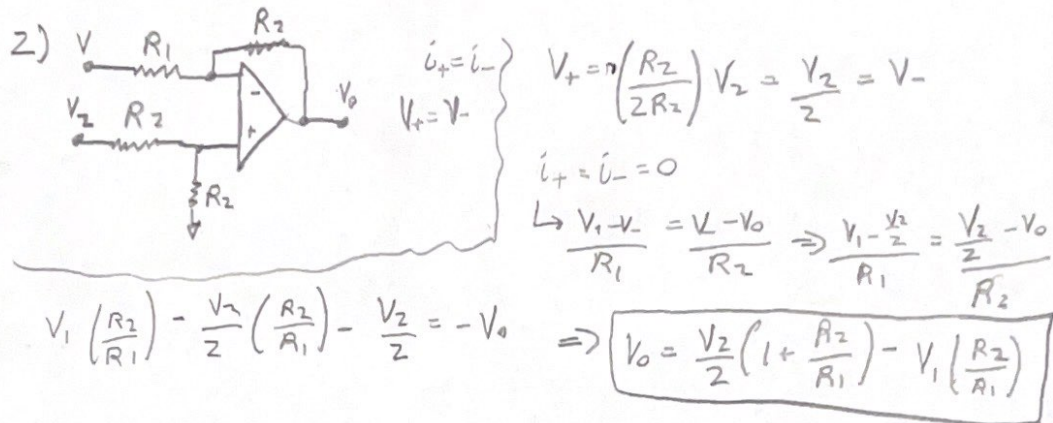 2)
V R₁ R₂
V₂ R₂ - + V₀
R₂
i₊ = i₋
V₊ = V₋
V₊ = (R₂/2R₂) V₂ = V₂/2 = V₋
i₊ = i₋ = 0
↳ (V₁ - V₋)/R₁ = (V - V₀)/R₂ ⇒ (V₁ - V₂/2)/R₁ = (V₂/2 - V₀)/R₂
V₁ (R₂/R₁) - V₂/2 (R₂/R₁) - V₂/2 = -V₀
⇒ V₀ = V₂/2 (1 + R₂/R₁) - V₁ (R₂/R₁)